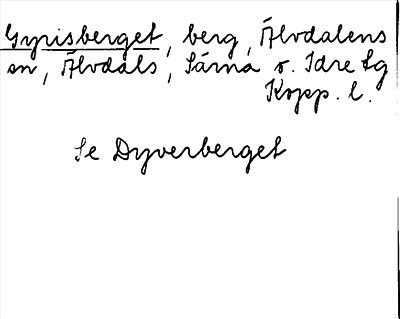 Gyrisberget, berg, Älvdalens
sn, Älvdals, Särna o. Idre tg
Kopp. l.
Se Dyverberget